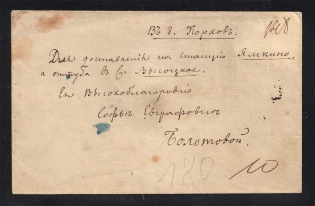 Въ г. Порховъ.
Для доставленія на станцію Ямкино,
а оттуда В с. Высоцкое.
Ея Высокоблагородію
Софьѣ Евграфовнѣ
Болотовой.
180
10